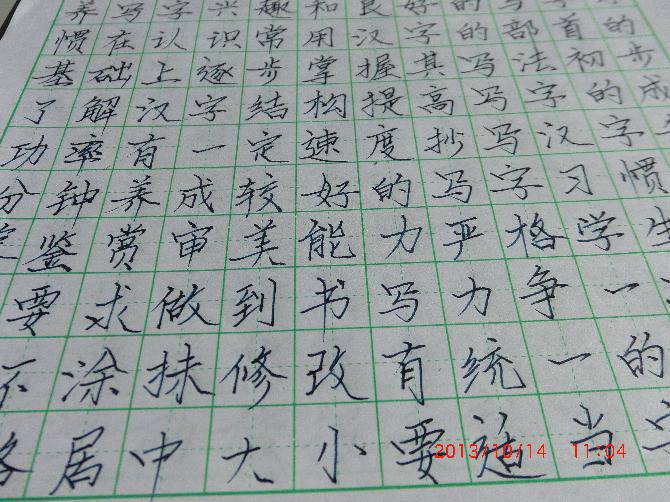 养写字兴趣和良好的写字
惯在认识常用汉字的部首的
基础上逐步掌握其写法初步
了解汉字结构提高写字的成
功率有一定速度抄写汉字
分钟养成较好的写字习惯
鉴赏审美能力严格学生
要求做到书写力争一
不涂抹修改有统一的
格居中大小要适当
2013/10/14 11:04